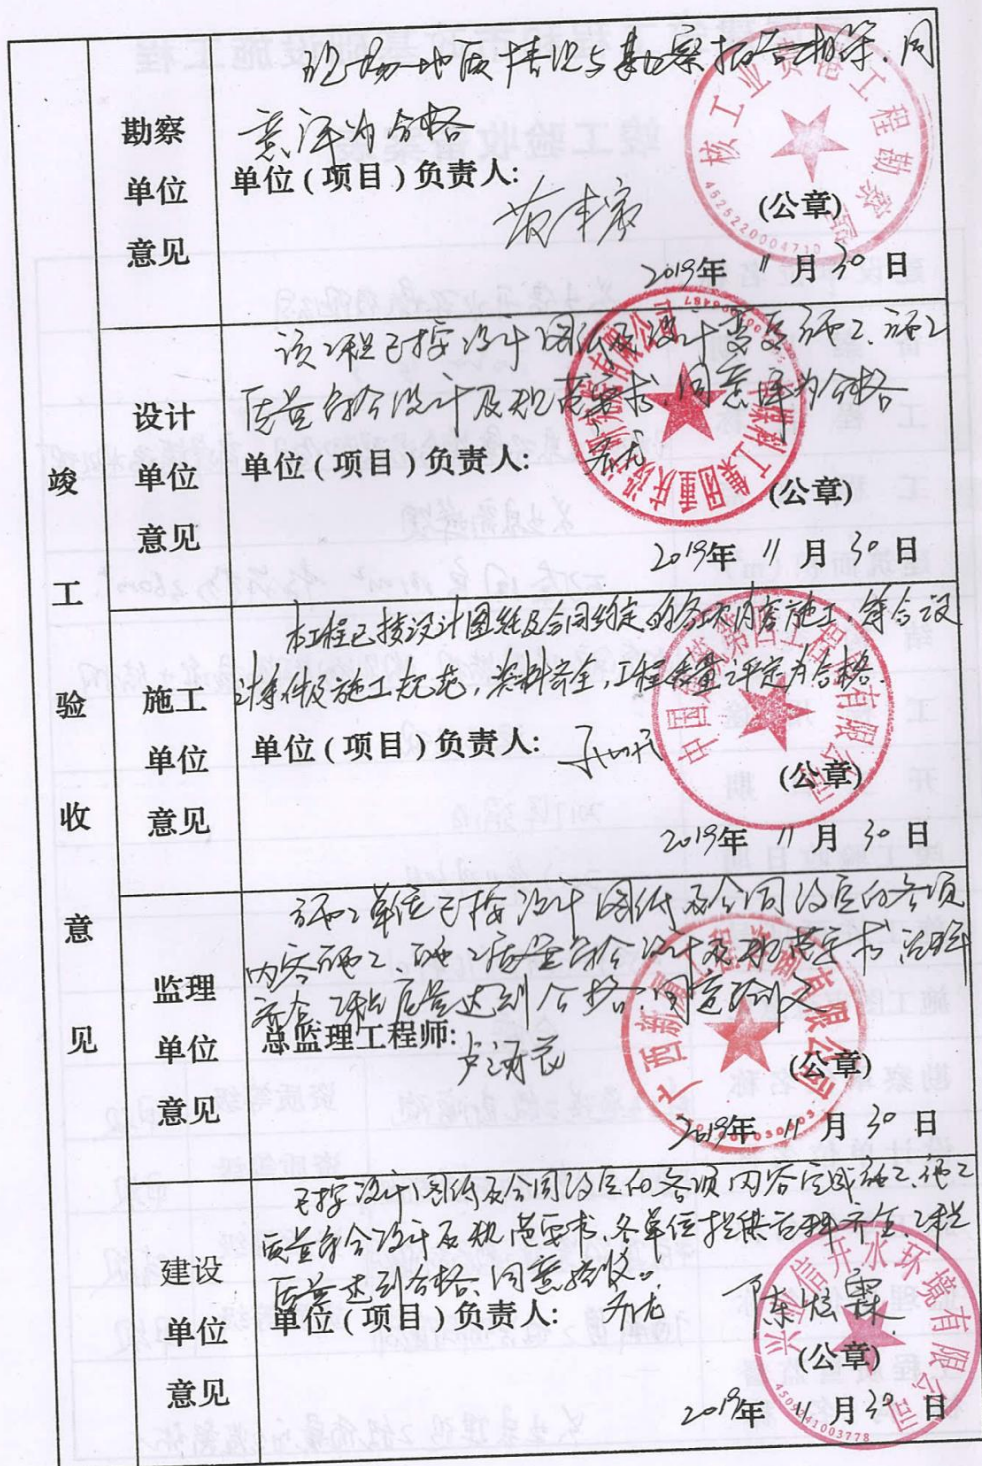 竣工验收意见
勘察单位意见
现场地质情况与勘察报告相符,同
意评为合格
单位(项目)负责人:
(公章)
2019年 11月30日
核工业贵港工程勘察院
4525220004710
设计单位意见
该工程已按设计图纸及设计变更施工、施工
质量符合设计及规范要求 同意评为合格
单位(项目)负责人:
(公章)
2019年 11月30日
施工单位意见
本工程已按设计图纸及合同约定的各项内容施工,符合设
计条件及施工规范,资料齐全,工程质量评定为合格.
单位(项目)负责人:
(公章)
2019年 11月30日
监理单位意见
施工单位已按设计图纸及合同约定的各项
内容施工、施工质量符合设计及规范要求 资料
齐全 工程质量达到合格、同意验收
总监理工程师:
(公章)
2019年 11月30日
建设单位意见
已按设计图纸及合同约定的各项内容完成施工、施工
质量符合设计及规范要求、各单位提供资料齐全、工程
质量达到合格、同意验收。
单位(项目)负责人:
(公章)
2019年 11月30日